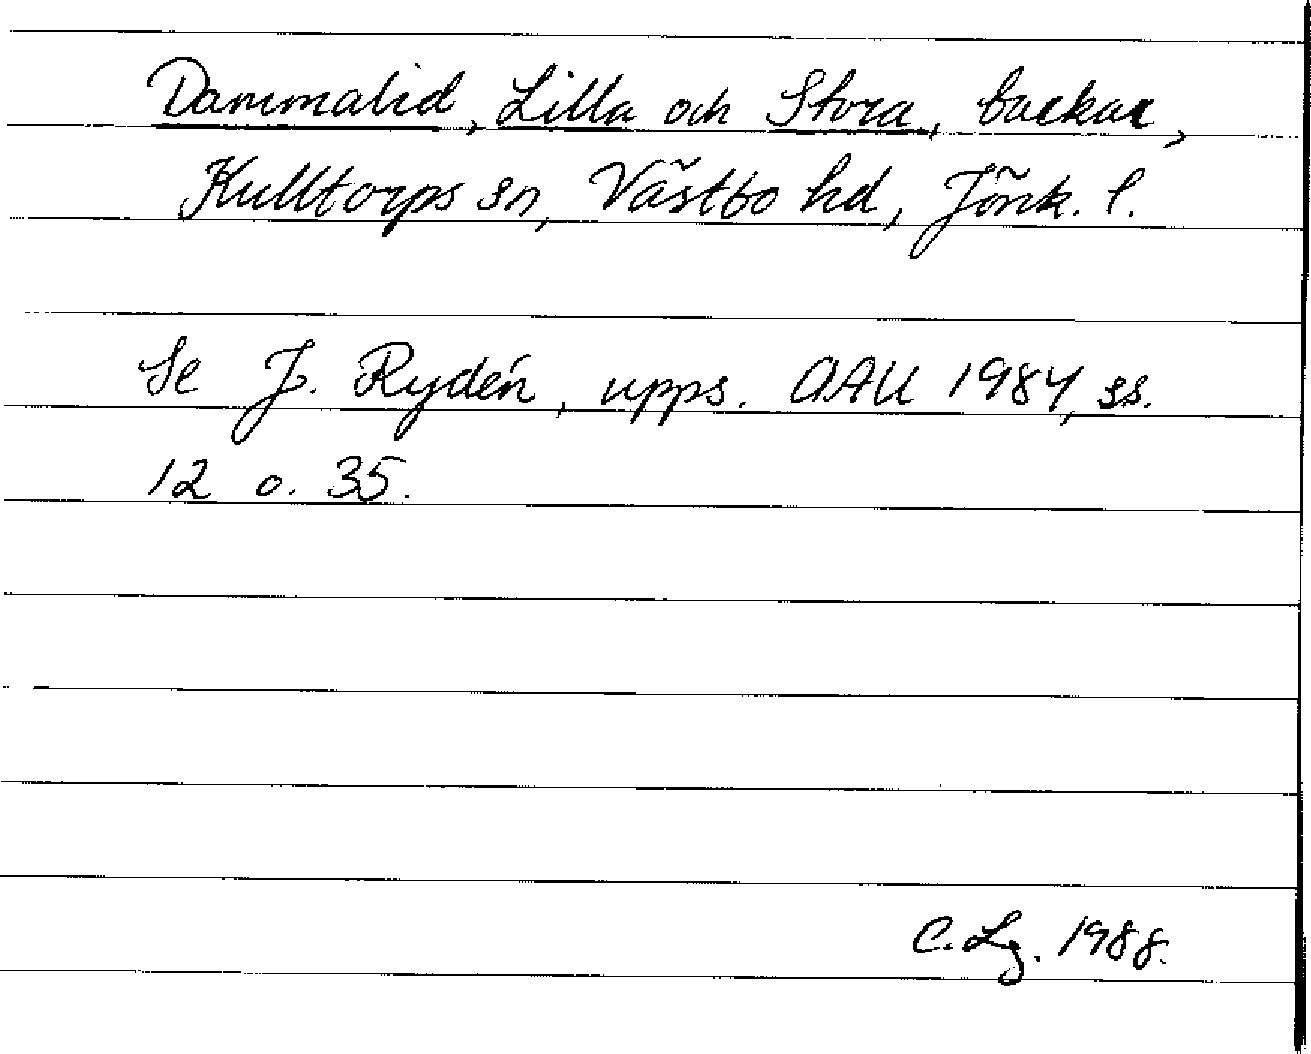 Dammalid, Lilla och Stora, backar,
Kulltorps sn, Västbo hd, Jönk. l.
Se J. Rydén, upps. OAU 1984, ss.
12 o. 35.
C. Lg. 1988.